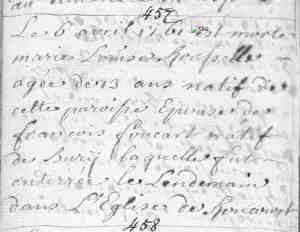 457
Le 6 avril 1761 est morte
marie Louise
agée de 73 ans natif de
cette paroisse Epouse de
francois foucart natif
de Bury laquelle fut
enterrée le Lendemain
dans L'Eglise de
458